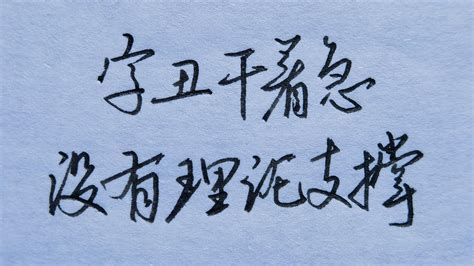 字丑干着急
没有理论支撑